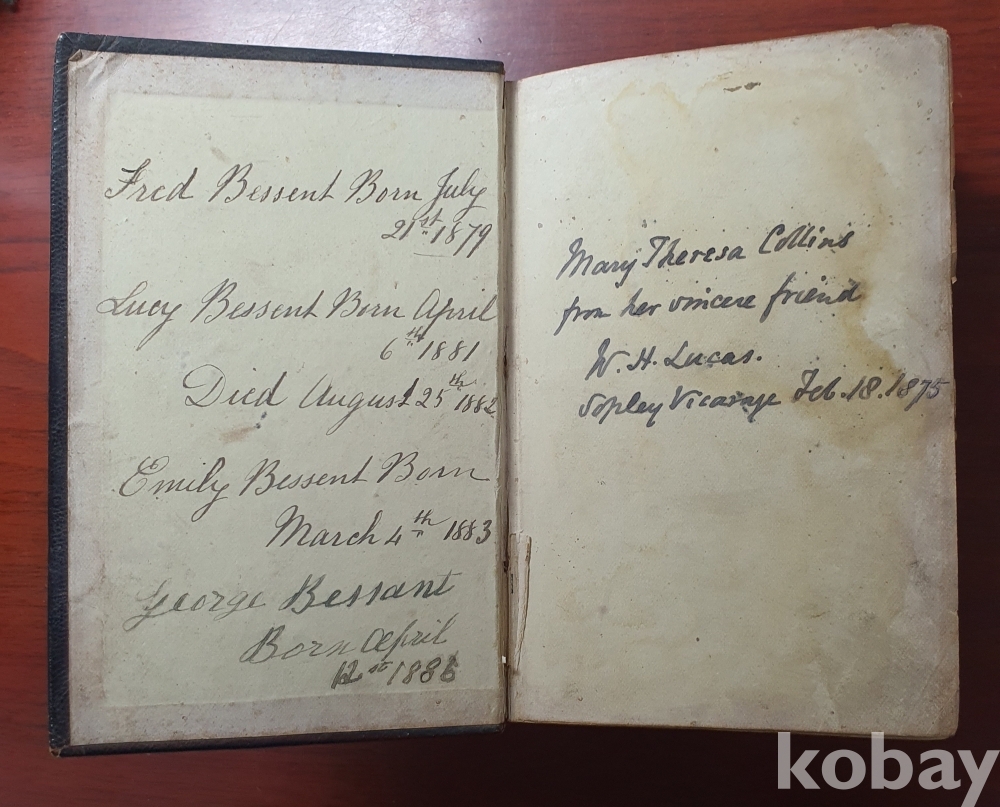 Fred Bessent Born July
21st 1879
Lucy Bessent Born April
6th 1881
Died August 25th 1882
Emily Bessent Born
March 4th 1883
George Bessant
Born April
12st 1886
Mary Theresa Collins
from her sincere friend
W. H. Lucas.
Sopley Vicarage Feb. 18. 1875
kobay